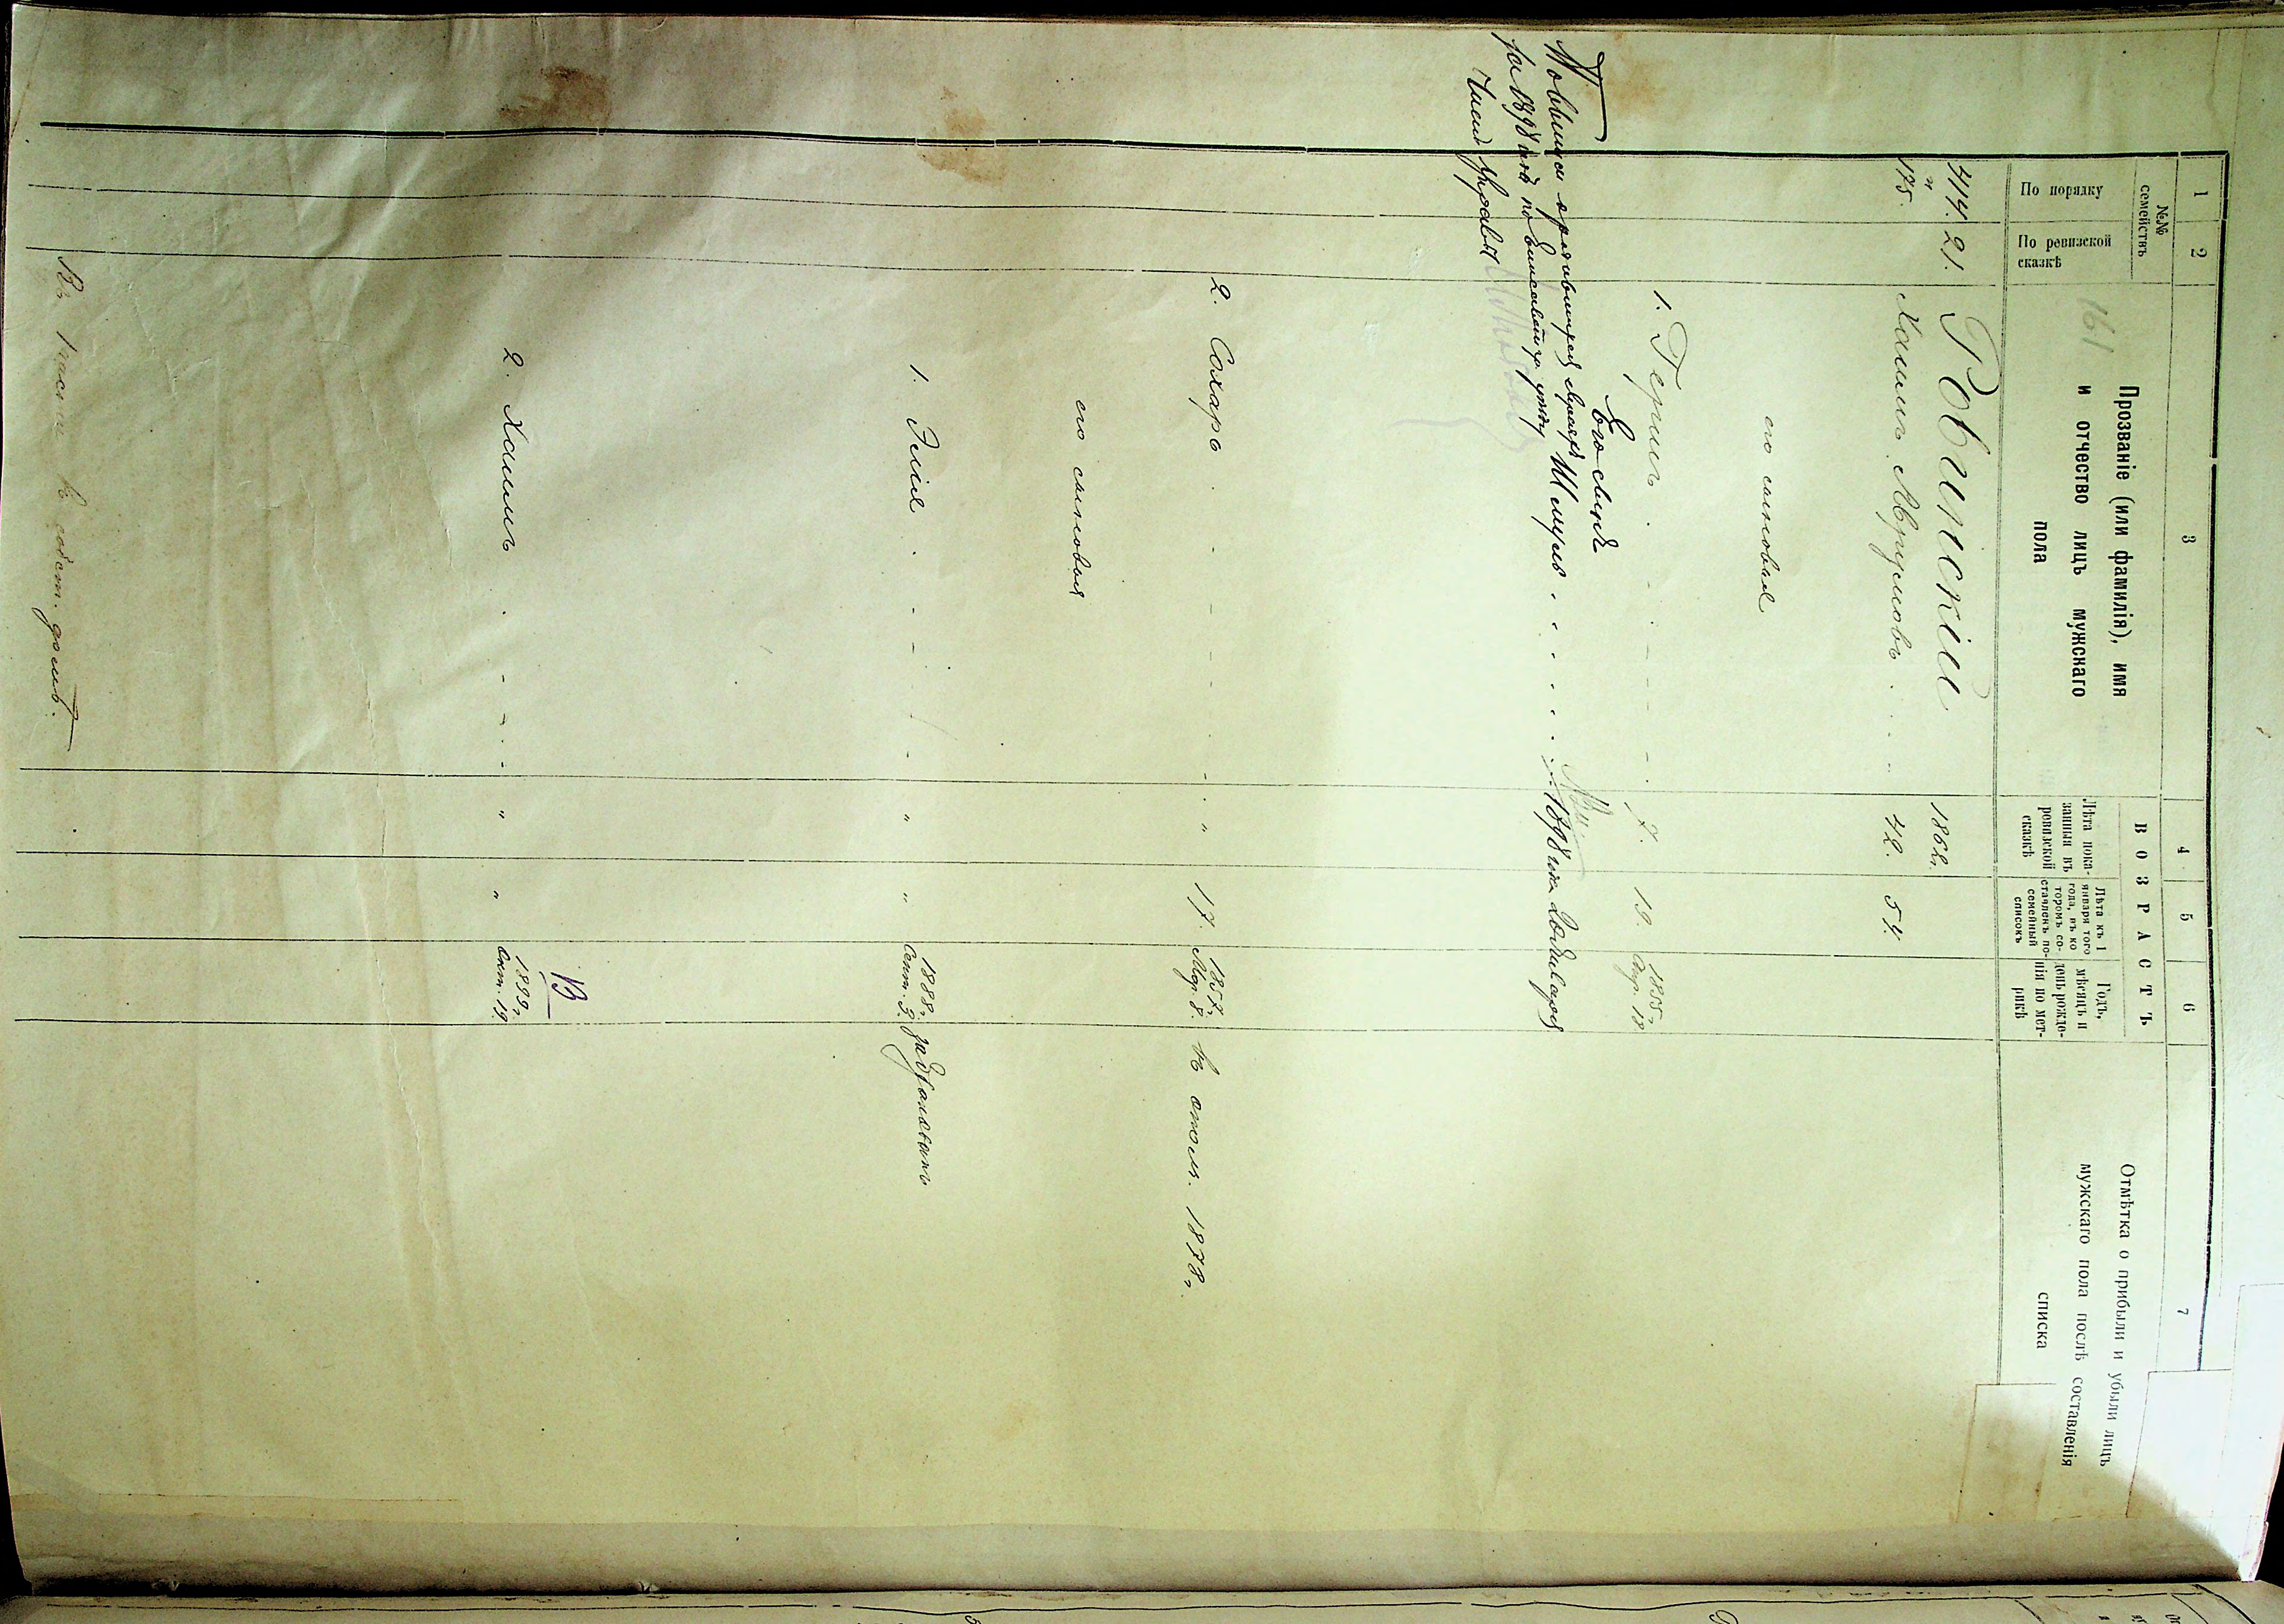 1 2 3 4 5 6 7
№№ семействъ
По порядку
По ревизской сказкѣ
161
Прозваніе (или фамилія), имя
и отчество лицъ мужскаго
пола
ВОЗРАСТЪ
Лѣта пока-
занныя въ
ревизской
сказкѣ
Лѣта къ 1
января того
года, въ ко-
торомъ со-
ставленъ по-
семейный
списокъ
Годъ,
мѣсяцъ и
день рожде-
нія по мет-
рикѣ
Отмѣтка о прибыли и убыли лицъ
мужскаго пола послѣ составленія
списка
414. 21. Ровинскій 1862г.
175. Хаимъ 42. 54.
его сыновья
1. Гершъ 7. 19. 1855г.
Апр. 18
Его сынъ
Шмуль 1898
за 1898 годъ по
2. Сахаръ " 17. 1857г.
Мар. 8. въ 1878г.
его сыновья
1. Элія " " 1888г.
Сент. 3.
В
2. Хаимъ " " 1899г.
Окт. 19.
въ собст. домѣ.